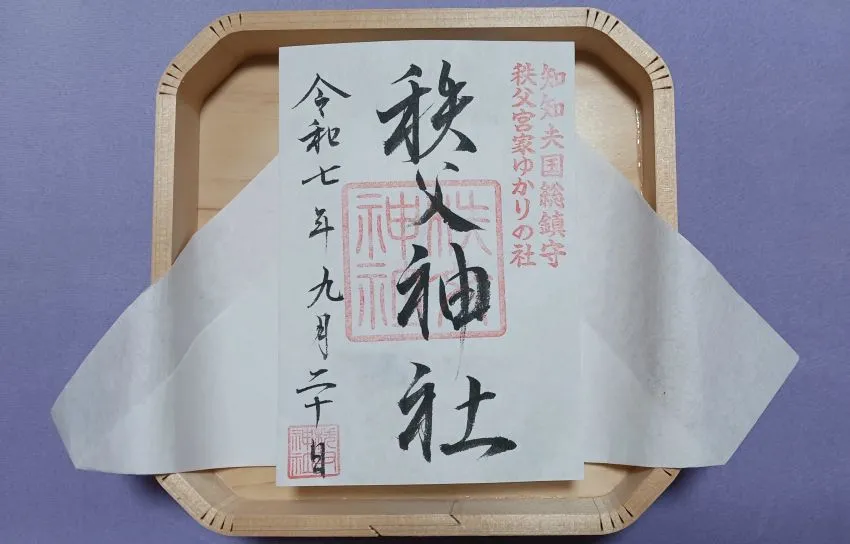 知知夫国総鎮守
秩父宮家ゆかりの社
秩父神社
秩父神社
令和七年九月二十日
秩父神社